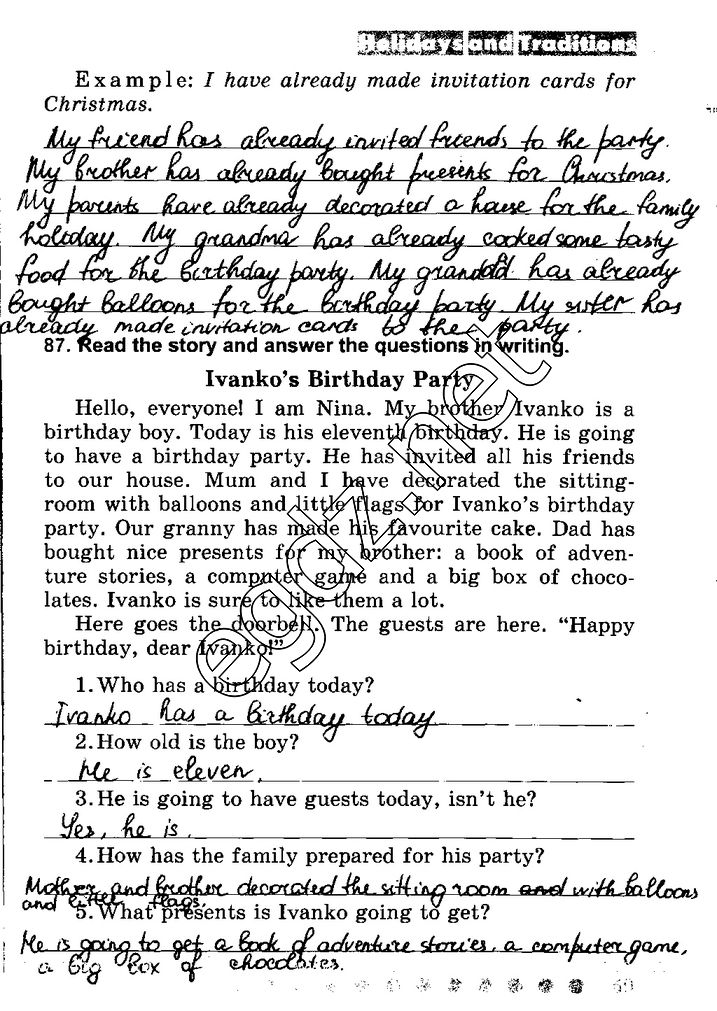 Holidays and Traditions
Example: I have already made invitation cards for
Christmas.
My friend has already invited friends to the party.
My brother has already bought presents for Christmas.
My parents have already decorated a house for the family
holiday. My grandma has already cooked some tasty
food for the birthday party. My granddad has already
bought balloons for the birthday party. My sister has
already made invitation cards to the party.
87. Read the story and answer the questions in writing.
Ivanko's Birthday Party
Hello, everyone! I am Nina. My brother Ivanko is a
birthday boy. Today is his eleventh birthday. He is going
to have a birthday party. He has invited all his friends
to our house. Mum and I have decorated the sitting-
room with balloons and little flags for Ivanko's birthday
party. Our granny has made his favourite cake. Dad has
bought nice presents for my brother: a book of adven-
ture stories, a computer game and a big box of choco-
lates. Ivanko is sure to like them a lot.
Here goes the doorbell. The guests are here. "Happy
birthday, dear Ivanko!"
egdz.net
1. Who has a birthday today?
Ivanko has a birthday today
2. How old is the boy?
He is eleven.
3. He is going to have guests today, isn't he?
Yes, he is.
4. How has the family prepared for his party?
Mother and brother decorated the sitting room and with balloons
and little flags.
5. What presents is Ivanko going to get?
He is going to get a book of adventure stories, a computer game,
a big box of chocolates.